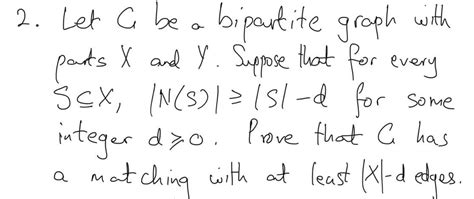 2. Let G be a bipartite graph with
parts X and Y. Suppose that for every
S⊆X, |N(S)| ≥ |S|-d for some
integer d≥0. Prove that G has
a matching with at least |X|-d edges.